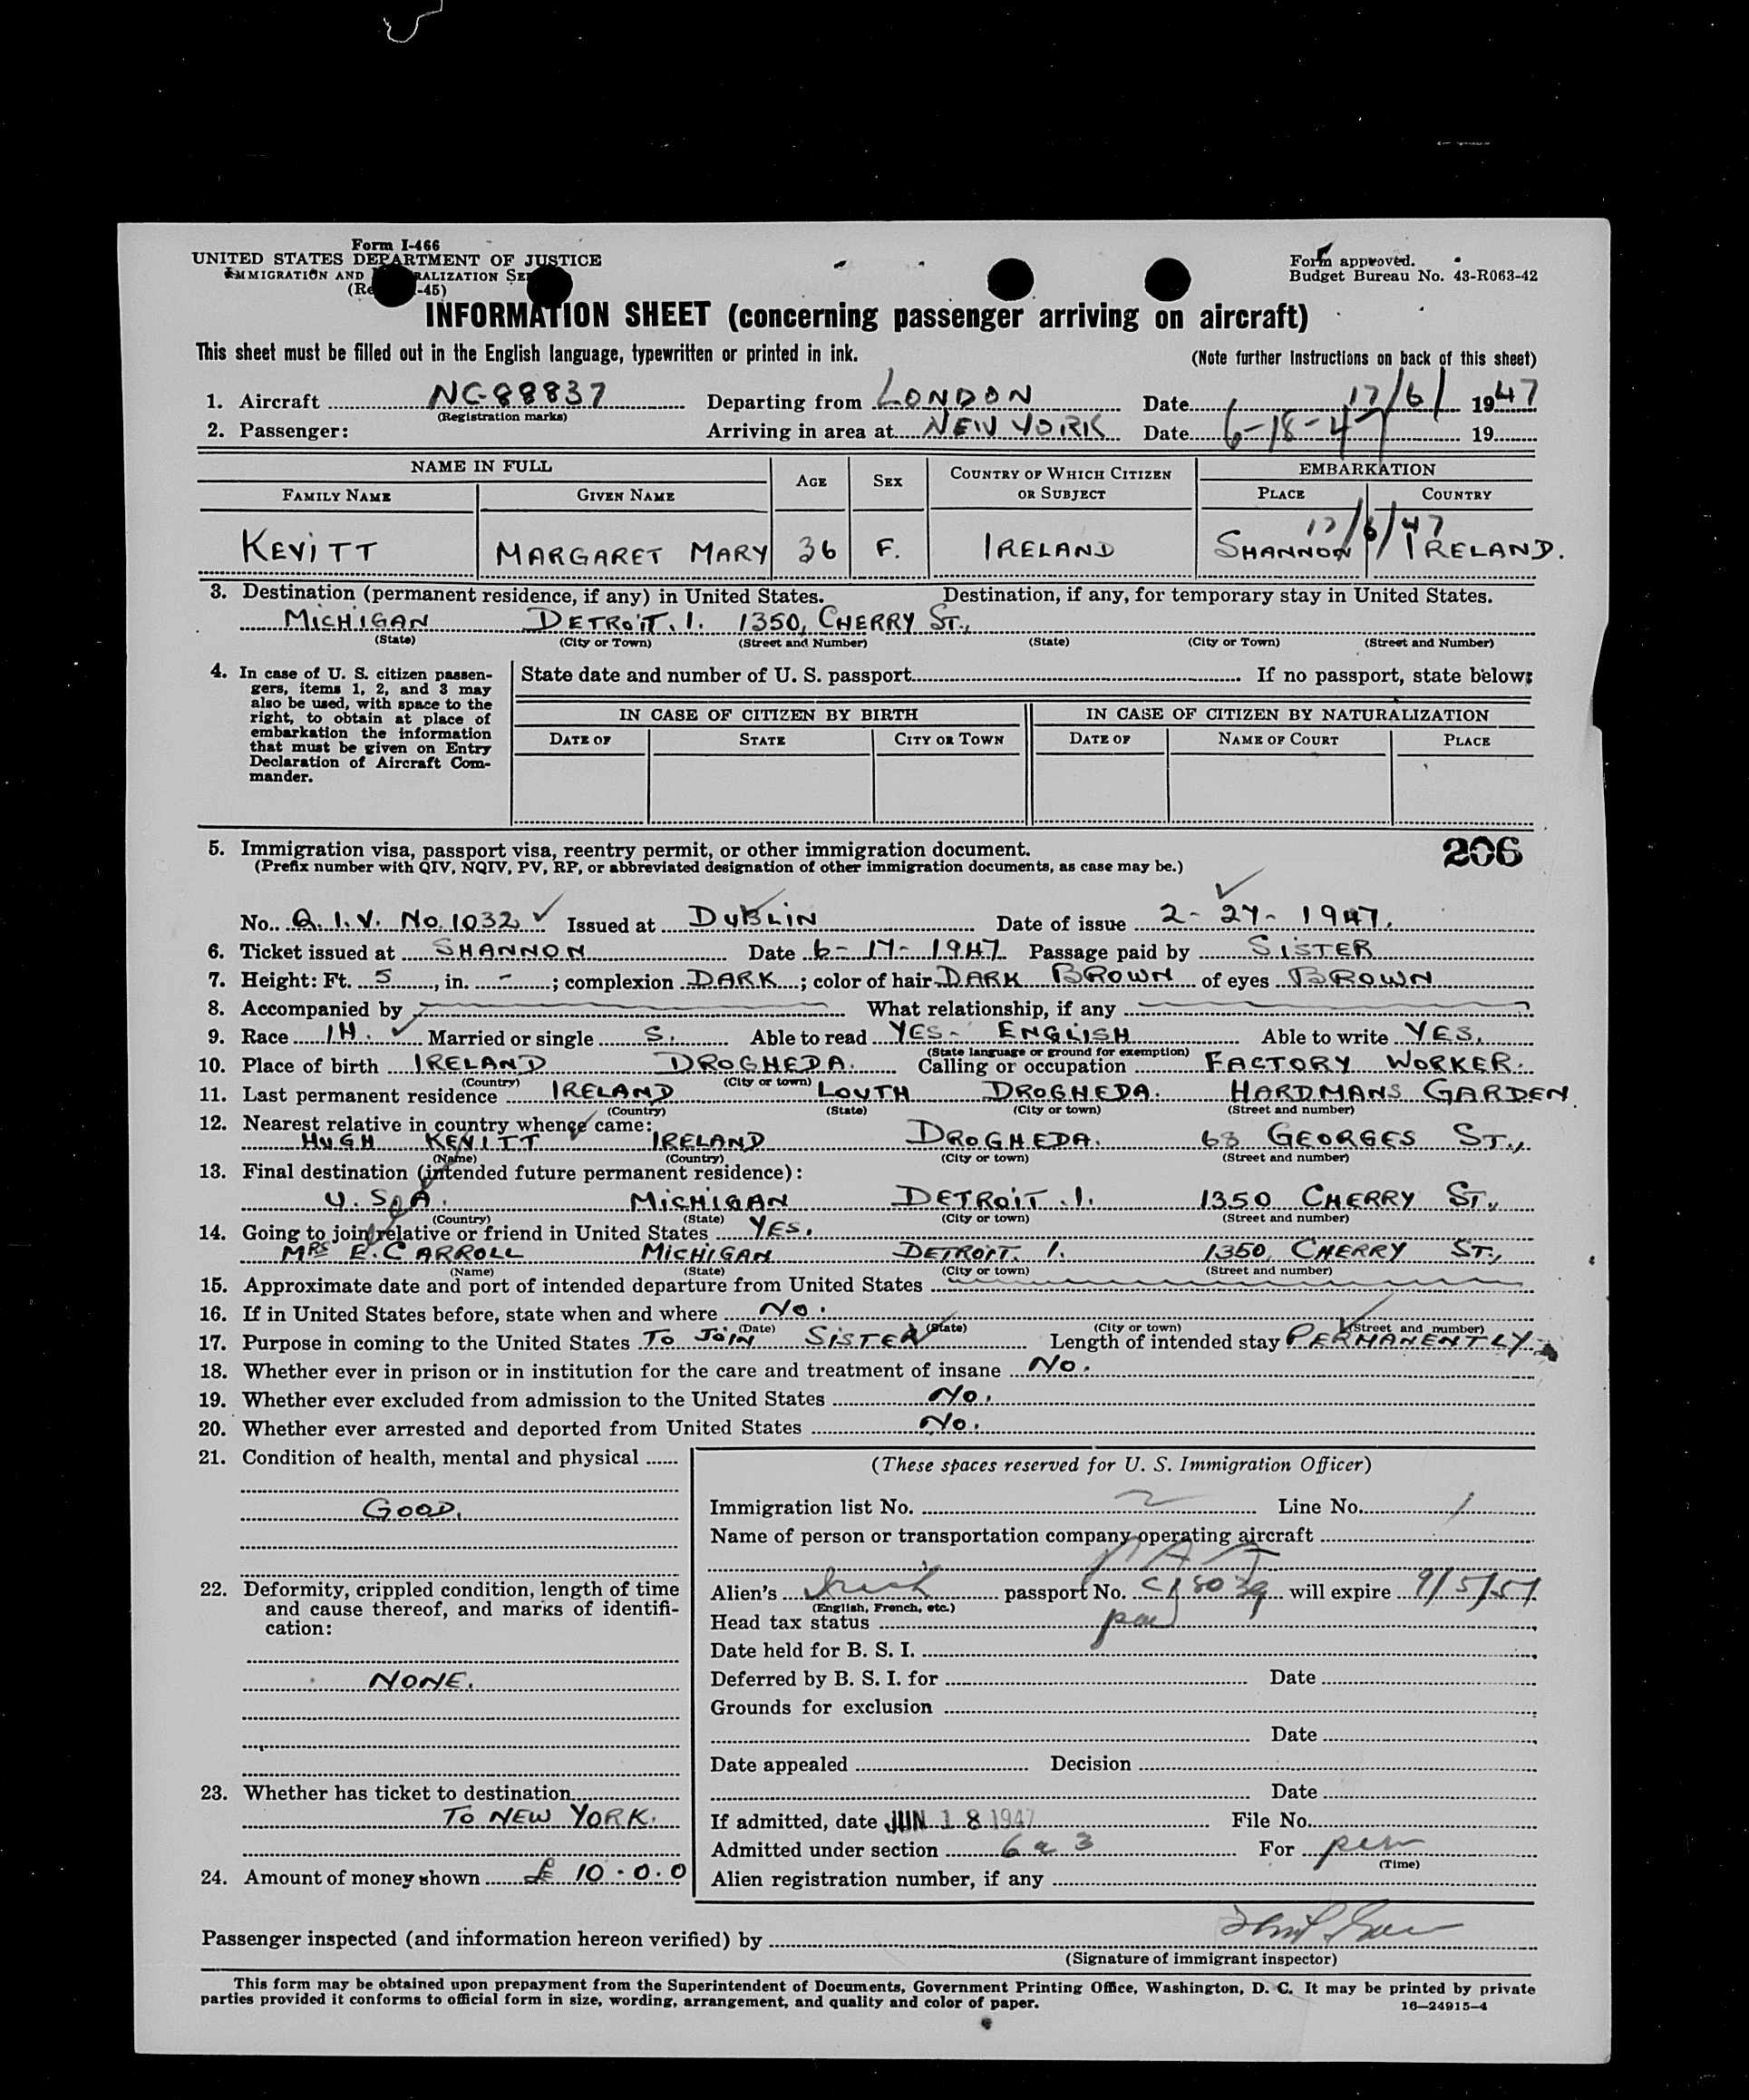 Form I-466
UNITED STATES DEPARTMENT OF JUSTICE
IMMIGRATION AND RALIZATION SE
(Re -45)
Form approved.
Budget Bureau No. 43-R063-42
INFORMATION SHEET (concerning passenger arriving on aircraft)
This sheet must be filled out in the English language, typewritten or printed in ink. (Note further instructions on back of this sheet)
1. Aircraft NC-88837 Departing from LONDON Date 17/6/ 1947
(Registration marks)
2. Passenger: Arriving in area at NEW YORK Date 6-18-47 19
NAME IN FULL AGE SEX COUNTRY OF WHICH CITIZEN OR SUBJECT EMBARKATION
FAMILY NAME GIVEN NAME PLACE COUNTRY
17/6/47
KEVITT MARGARET MARY 36 F. IRELAND SHANNON IRELAND.
3. Destination (permanent residence, if any) in United States. Destination, if any, for temporary stay in United States.
MICHIGAN DETROIT. 1. 1350, CHERRY ST.,
(State) (City or Town) (Street and Number) (State) (City or Town) (Street and Number)
4. In case of U. S. citizen passen-
gers, items 1, 2, and 3 may
also be used, with space to the
right, to obtain at place of
embarkation the information
that must be given on Entry
Declaration of Aircraft Com-
mander.
State date and number of U. S. passport If no passport, state below:
IN CASE OF CITIZEN BY BIRTH IN CASE OF CITIZEN BY NATURALIZATION
DATE OF STATE CITY OR TOWN DATE OF NAME OF COURT PLACE
206
5. Immigration visa, passport visa, reentry permit, or other immigration document.
(Prefix number with QIV, NQIV, PV, RP, or abbreviated designation of other immigration documents, as case may be.)
No. Q.I.V. No. 1032 Issued at DUBLIN Date of issue 2-27-1947.
6. Ticket issued at SHANNON Date 6-17-1947 Passage paid by SISTER
7. Height: Ft. 5, in. -; complexion DARK; color of hair DARK BROWN of eyes BROWN
8. Accompanied by What relationship, if any
9. Race IH. Married or single S. Able to read YES- ENGLISH Able to write YES.
(State language or ground for exemption)
10. Place of birth IRELAND DROGHEDA. Calling or occupation FACTORY WORKER.
(Country) (City or town)
11. Last permanent residence IRELAND LOUTH DROGHEDA. HARDMANS GARDEN.
(Country) (State) (City or town) (Street and number)
12. Nearest relative in country whence came:
HUGH KEVITT IRELAND DROGHEDA. 68 GEORGES ST.,
(Name) (Country) (City or town) (Street and number)
13. Final destination (intended future permanent residence):
U.S.A. MICHIGAN DETROIT. 1. 1350 CHERRY ST.,
(Country) (State) (City or town) (Street and number)
14. Going to join relative or friend in United States YES.
MRS E. CARROLL MICHIGAN DETROIT. 1. 1350, CHERRY ST.,
(Name) (State) (City or town) (Street and number)
15. Approximate date and port of intended departure from United States
16. If in United States before, state when and where No.
(Date) (State) (City or town) (Street and number)
17. Purpose in coming to the United States TO JOIN SISTER Length of intended stay PERMANENTLY
18. Whether ever in prison or in institution for the care and treatment of insane No.
19. Whether ever excluded from admission to the United States No.
20. Whether ever arrested and deported from United States No.
21. Condition of health, mental and physical
GOOD.
22. Deformity, crippled condition, length of time
and cause thereof, and marks of identifi-
cation:
NONE.
23. Whether has ticket to destination
TO NEW YORK.
24. Amount of money shown £ 10-0.0
(These spaces reserved for U. S. Immigration Officer)
Immigration list No. 2 Line No. 1
Name of person or transportation company operating aircraft
Alien's Irish passport No. will expire 9/5/51
(English, French, etc.)
Head tax status
Date held for B. S. I.
Deferred by B. S. I. for Date
Grounds for exclusion
Date
Date appealed Decision
Date
If admitted, date JUN 18 1947 File No.
Admitted under section 6 a 3 For per
(Time)
Alien registration number, if any
Passenger inspected (and information hereon verified) by
(Signature of immigrant inspector)
This form may be obtained upon prepayment from the Superintendent of Documents, Government Printing Office, Washington, D. C. It may be printed by private
parties provided it conforms to official form in size, wording, arrangement, and quality and color of paper.
16—24915-4